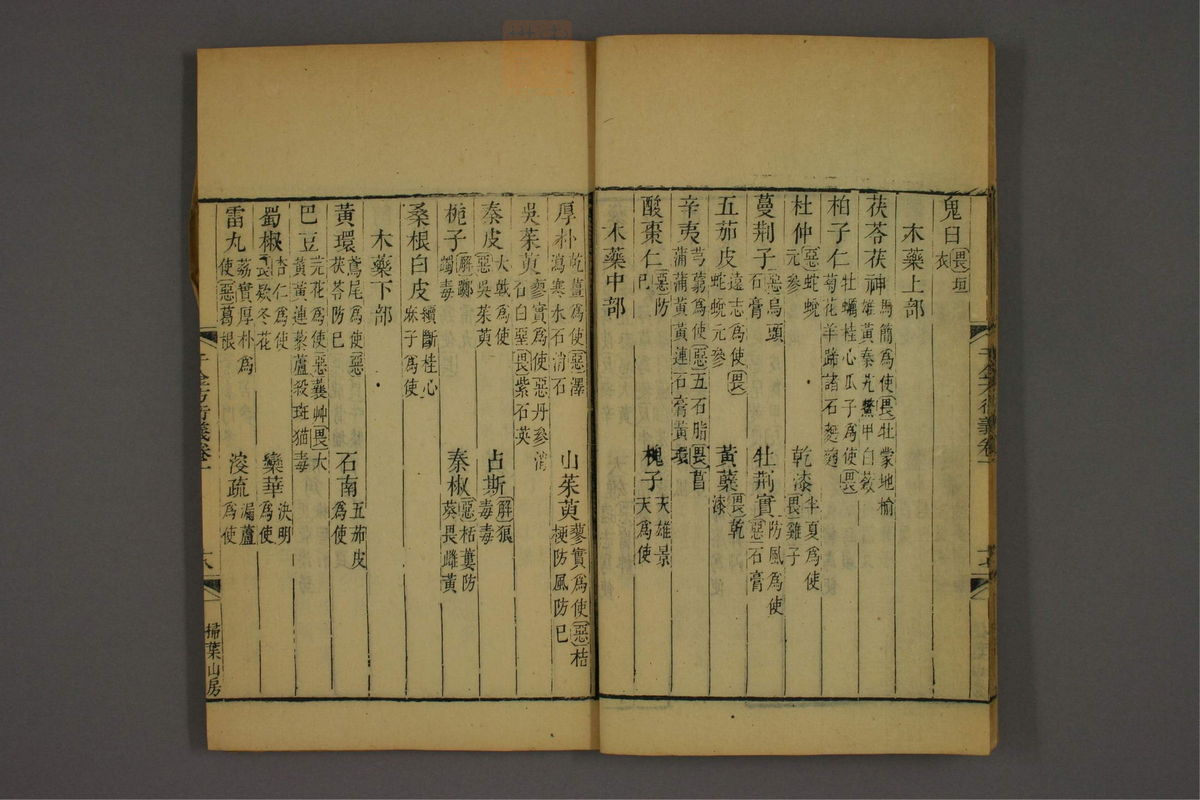 鬼臼畏垣衣
木藥上部
茯苓茯神馬簡爲使畏牡蒙地榆雄黃秦艽鱉甲白蘞
柏子仁牡蠣桂心瓜子爲使畏菊花羊蹄諸石麪麯
杜仲惡蛇蛻元參 乾漆半夏爲使畏雞子
蔓荆子惡烏頭石膏 牡荆實防風爲使惡石膏
五茄皮遠志爲使畏蛇蛻元參 黃蘗畏乾漆
辛夷芎藭爲使惡五石脂畏菖蒲蒲黃黃連石膏黃環
酸棗仁惡防已 槐子天雄景天爲使
木藥中部
厚朴乾薑爲使惡澤瀉寒水石消石 山茱萸蓼實爲使惡桔梗防風防已
吳茱萸蓼實爲使惡丹參消石白堊畏紫石英
秦皮大戟爲使惡吳茱萸 占斯解狼毒毒
梔子解躑躅毒 秦椒惡栝蔞防葵畏雌黃
桑根白皮續斷桂心麻子爲使
木藥下部
黃環鳶尾爲使惡茯苓防已 石南五茄皮爲使
巴豆芫花爲使惡蘘艸畏大黃黃連藜蘆殺斑猫毒
蜀椒杏仁爲使畏欵冬花 欒華決明爲使
雷丸荔實厚朴爲使惡葛根 溲疏漏蘆爲使
千金方衍義卷一
十六
掃葉山房